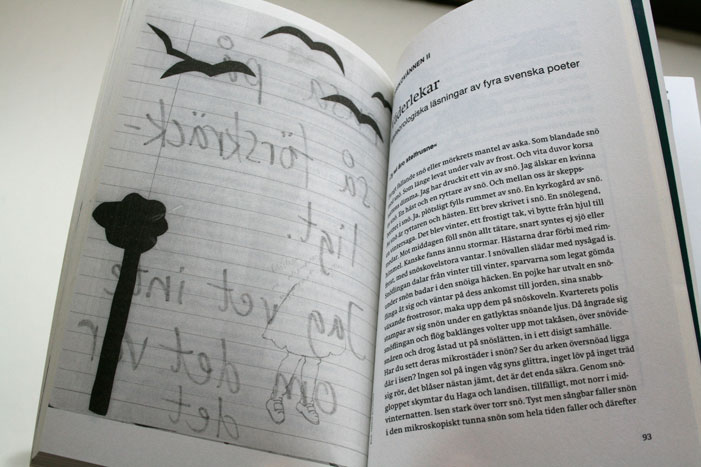 på
så förskräck-
ligt.
Jag vet inte
om det var
det
VÄNNEN II
derlekar
orologiska läsningar av fyra svenska poeter
stelfrusne»
fallande snö eller mörkrets mantel av aska. Som blandade snö
Som länge levat under valv av frost. Och vita duvor korsa
dimma. Jag har druckit ett vin av snö. Jag älskar en kvinna
snö. En häst och en ryttare av snö. Och mellan oss är skepps-
i snö. Ja, plötsligt fylls rummet av snö. En kyrkogård av snö.
snö är ryttaren och hästen. Ett brev skrivet i snö. En snölegend,
vintersaga. Det blev vinter, ett frostigt tak, vi bytte från hjul till
Mot middagen föll snön allt tätare, snart syntes ej sjö eller
himmel. Kanske fanns ännu stormar. Hästarna drar förbi med rim-
frost, med snöskovelstora vantar. I snövallen slådar med nysågad is.
Snöflingan dalar från vinter till vinter, sparvarna som legat gömda
under snön badar i den snöiga häcken. En pojke har utvalt en snö-
flinga åt sig och väntar på dess ankomst till jorden, sina snabb-
växande frostrosor, maka upp dem på snöskoveln. Kvarterets polis
stampar av sig snön under en gatlyktas snöande ljus. Då ångrade sig
snöflingan och flög baklänges volter upp mot takåsen, över snövide-
snåren och drog åstad ut på snöslätten, in i ett disigt samhälle.
Har du sett deras mikrostäder i snön? Ser du arken översnöad ligga
där i isen? Ingen sol på ingen våg syns glittra, inget löv på inget träd
sig rör, det blåser nästan jämt, det är det enda säkra. Genom snö-
gloppet skymtar du Haga och landisen, tillfälligt, mot norr i mid-
vinternatten. Isen stark över torr snö. Tyst men sångbar faller snön
i den mikroskopiskt tunna snön som hela tiden faller och därefter
93